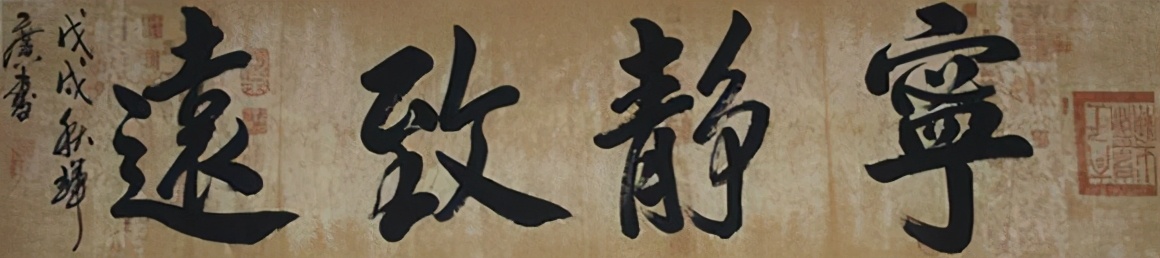 寧靜致遠
戊戌秋
書